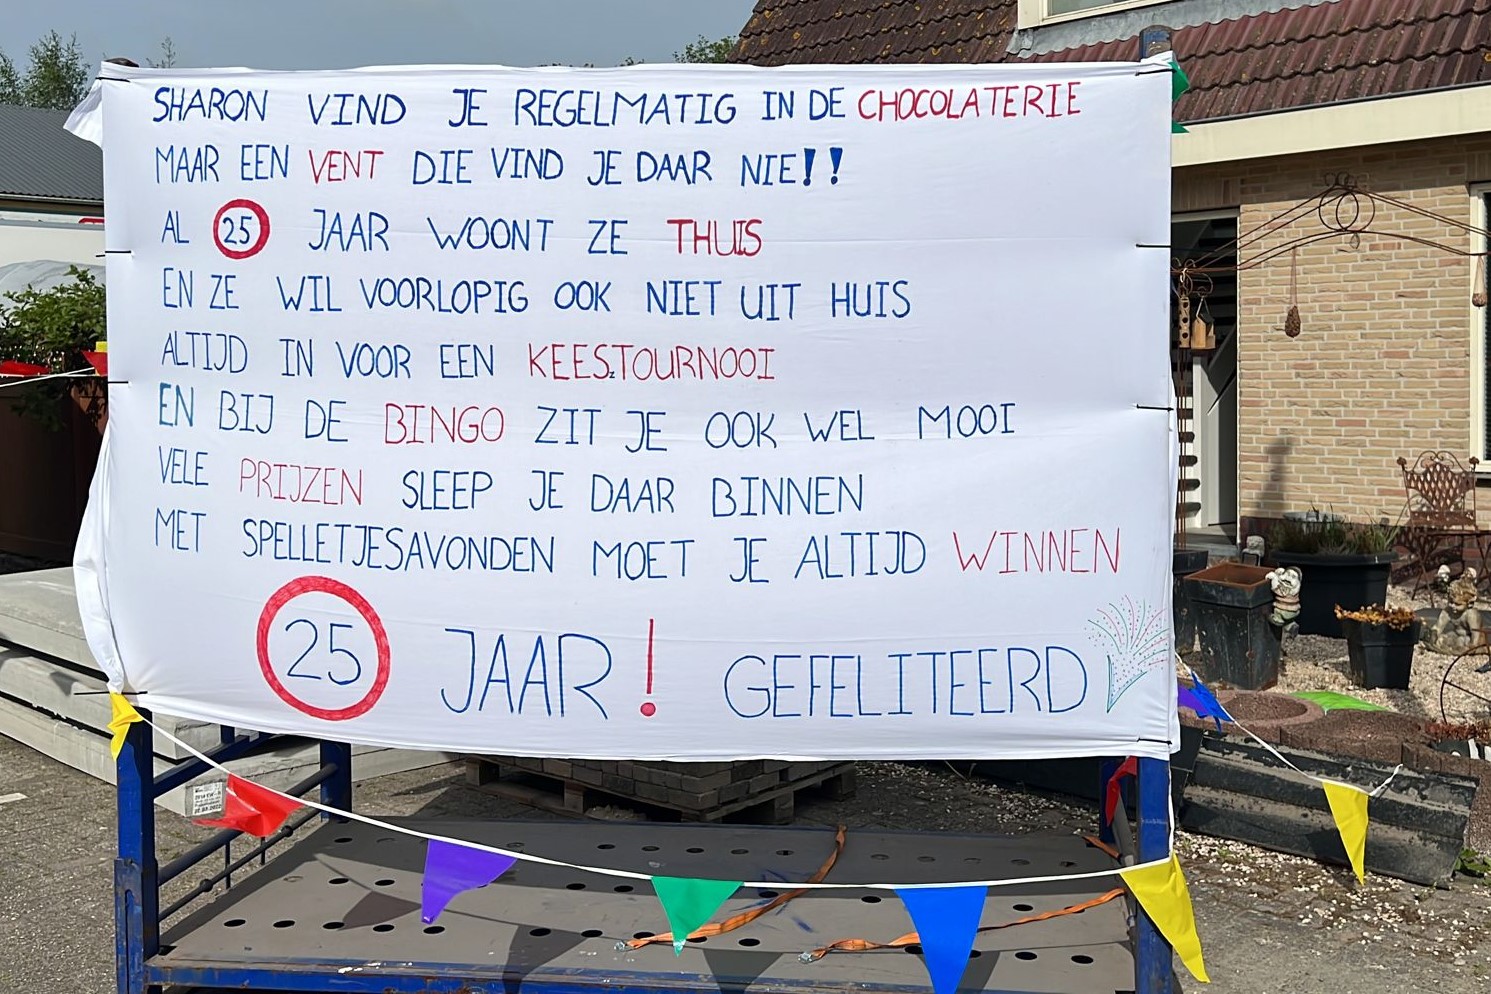 SHARON VIND JE REGELMATIG IN DE CHOCOLATERIE
MAAR EEN VENT DIE VIND JE DAAR NIE!!
AL 25 JAAR WOONT ZE THUIS
EN ZE WIL VOORLOPIG OOK NIET UIT HUIS
ALTIJD IN VOOR EEN KEESTOURNOOI
EN BIJ DE BINGO ZIT JE OOK WEL MOOI
VELE PRIJZEN SLEEP JE DAAR BINNEN
MET SPELLETJESAVONDEN MOET JE ALTIJD WINNEN
25 JAAR! GEFELITEERD